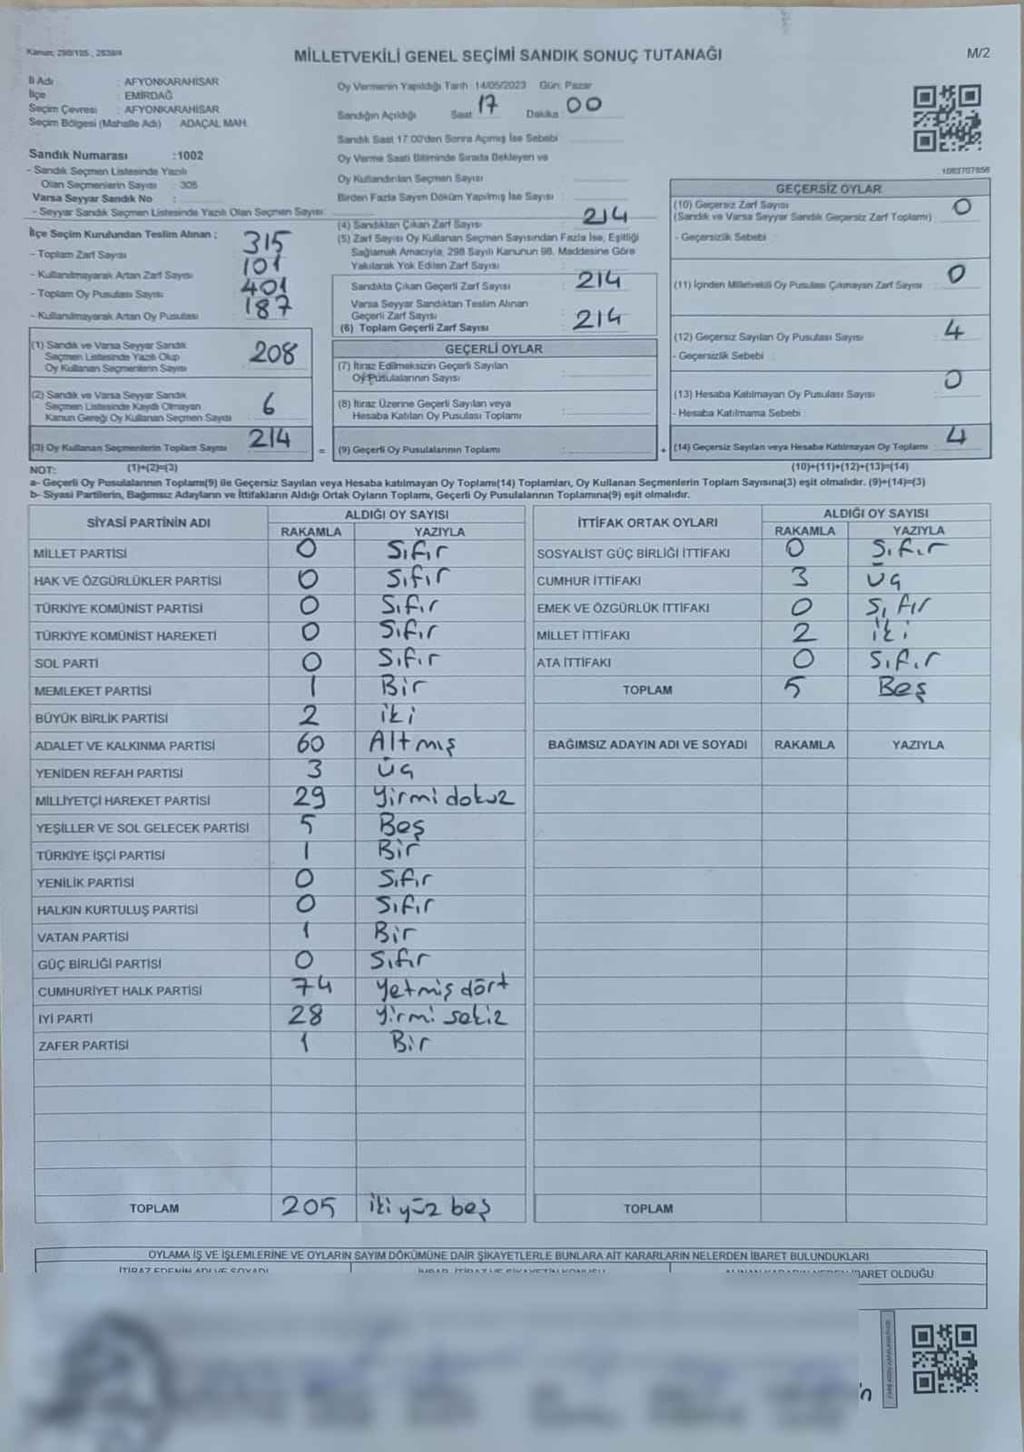 Kanun: 298/105 , 2839/4
MİLLETVEKİLİ GENEL SEÇİMİ SANDIK SONUÇ TUTANAĞI
M/2
İl Adı : AFYONKARAHİSAR
İlçe : EMİRDAĞ
Seçim Çevresi : AFYONKARAHİSAR
Seçim Bölgesi (Mahalle Adı) ADAÇAL MAH.
Sandık Numarası :1002
- Sandık Seçmen Listesinde Yazılı
Olan Seçmenlerin Sayısı : 305
Varsa Seyyar Sandık No :
- Seyyar Sandık Seçmen Listesinde Yazılı Olan Seçmen Sayısı:
Oy Vermenin Yapıldığı Tarih :14/05/2023 Gün: Pazar
Sandığın Açıldığı Saat 17 Dakika 00
Sandık Saat 17:00'den Sonra Açılmış İse Sebebi
Oy Verme Saati Bitiminde Sırada Bekleyen ve
Oy Kullandırılan Seçmen Sayısı :
Birden Fazla Sayım Döküm Yapılmış İse Sayısı :
İlçe Seçim Kurulundan Teslim Alınan ;
- Toplam Zarf Sayısı 315
- Kullanılmayarak Artan Zarf Sayısı 101
- Toplam Oy Pusulası Sayısı 401
- Kullanılmayarak Artan Oy Pusulası 187
(1) Sandık ve Varsa Seyyar Sandık
Seçmen Listesinde Yazılı Olup
Oy Kullanan Seçmenlerin Sayısı 208
(2) Sandık ve Varsa Seyyar Sandık
Seçmen Listesinde Kaydı Olmayan
Kanun Gereği Oy Kullanan Seçmen Sayısı 6
(3) Oy Kullanan Seçmenlerin Toplam Sayısı 214
(4) Sandıktan Çıkan Zarf Sayısı 214
(5) Zarf Sayısı Oy Kullanan Seçmen Sayısından Fazla İse, Eşitliği
Sağlamak Amacıyla, 298 Sayılı Kanunun 98. Maddesine Göre
Yakılarak Yok Edilen Zarf Sayısı :
Sandıkta Çıkan Geçerli Zarf Sayısı 214
Varsa Seyyar Sandıktan Teslim Alınan
Geçerli Zarf Sayısı
(6) Toplam Geçerli Zarf Sayısı 214
GEÇERLİ OYLAR
(7) İtiraz Edilmeksizin Geçerli Sayılan
Oy Pusulalarının Sayısı :
(8) İtiraz Üzerine Geçerli Sayılan veya
Hesaba Katılan Oy Pusulası Toplamı :
= (9) Geçerli Oy Pusulalarının Toplamı :
1083707856
GEÇERSİZ OYLAR
(10) Geçersiz Zarf Sayısı 0
(Sandık ve Varsa Seyyar Sandık Geçersiz Zarf Toplamı)
- Geçersizlik Sebebi
(11) İçinden Milletvekili Oy Pusulası Çıkmayan Zarf Sayısı 0
(12) Geçersiz Sayılan Oy Pusulası Sayısı 4
- Geçersizlik Sebebi
(13) Hesaba Katılmayan Oy Pusulası Sayısı 0
- Hesaba Katılmama Sebebi
+ (14) Geçersiz Sayılan veya Hesaba Katılmayan Oy Toplamı 4
NOT: (1)+(2)=(3) (10)+(11)+(12)+(13)=(14)
a- Geçerli Oy Pusulalarının Toplamı(9) ile Geçersiz Sayılan veya Hesaba katılmayan Oy Toplamı(14) Toplamları, Oy Kullanan Seçmenlerin Toplam Sayısına(3) eşit olmalıdır. (9)+(14)=(3)
b- Siyasi Partilerin, Bağımsız Adayların ve İttifakların Aldığı Ortak Oyların Toplamı, Geçerli Oy Pusulalarının Toplamına(9) eşit olmalıdır.
SİYASİ PARTİNİN ADI ALDIĞI OY SAYISI
RAKAMLA YAZIYLA
MİLLET PARTİSİ 0 Sıfır
HAK VE ÖZGÜRLÜKLER PARTİSİ 0 Sıfır
TÜRKİYE KOMÜNİST PARTİSİ 0 Sıfır
TÜRKİYE KOMÜNİST HAREKETİ 0 Sıfır
SOL PARTİ 0 Sıfır
MEMLEKET PARTİSİ 1 Bir
BÜYÜK BİRLİK PARTİSİ 2 iki
ADALET VE KALKINMA PARTİSİ 60 Altmış
YENİDEN REFAH PARTİSİ 3 Üç
MİLLİYETÇİ HAREKET PARTİSİ 29 Yirmi dokuz
YEŞİLLER VE SOL GELECEK PARTİSİ 5 Beş
TÜRKİYE İŞÇİ PARTİSİ 1 Bir
YENİLİK PARTİSİ 0 Sıfır
HALKIN KURTULUŞ PARTİSİ 0 Sıfır
VATAN PARTİSİ 1 Bir
GÜÇ BİRLİĞİ PARTİSİ 0 Sıfır
CUMHURİYET HALK PARTİSİ 74 Yetmiş dört
İYİ PARTİ 28 Yirmi sekiz
ZAFER PARTİSİ 1 Bir
TOPLAM 205 iki yüz beş
İTTİFAK ORTAK OYLARI ALDIĞI OY SAYISI
RAKAMLA YAZIYLA
SOSYALİST GÜÇ BİRLİĞİ İTTİFAKI 0 Sıfır
CUMHUR İTTİFAKI 3 Üç
EMEK VE ÖZGÜRLÜK İTTİFAKI 0 Sıfır
MİLLET İTTİFAKI 2 iki
ATA İTTİFAKI 0 Sıfır
TOPLAM 5 Beş
BAĞIMSIZ ADAYIN ADI VE SOYADI RAKAMLA YAZIYLA
TOPLAM
OYLAMA İŞ VE İŞLEMLERİNE VE OYLARIN SAYIM DÖKÜMÜNE DAİR ŞİKAYETLERLE BUNLARA AİT KARARLARIN NELERDEN İBARET BULUNDUKLARI
İTİRAZ EDENİN ADI VE SOYADI